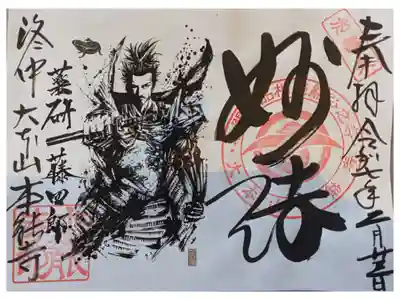 奉拝 令和七年二月
妙法
薬研藤四郎
洛中 大本山本能寺